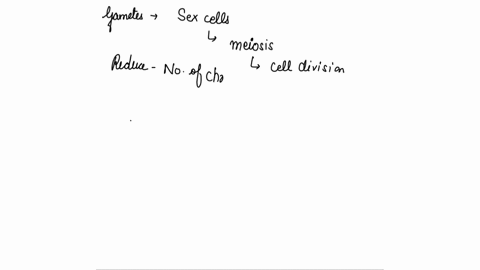 Gametes → Sex cells
↳ meiosis
↳ cell division
Reduce - No. of chr